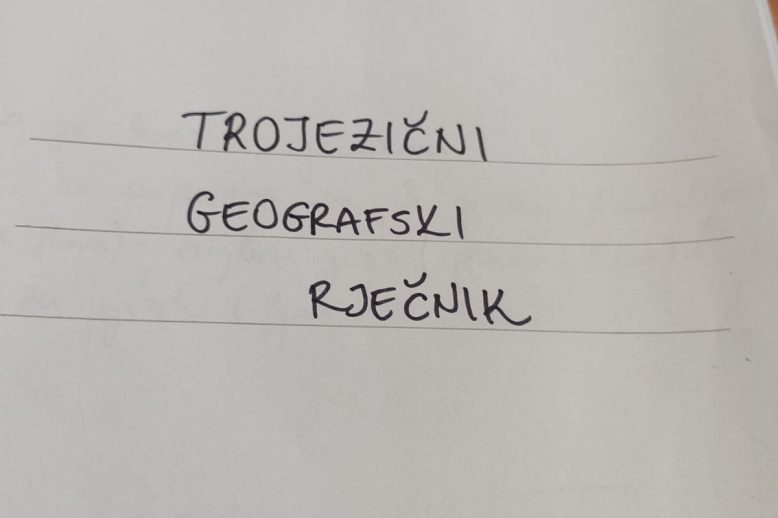 TROJEZIČNI
GEOGRAFSKI
RJEČNIK